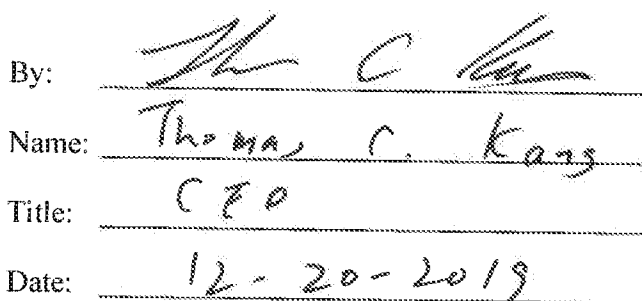 By: Th C K
Name: Thomas C. Kang
Title: CEO
Date: 12-20-2019